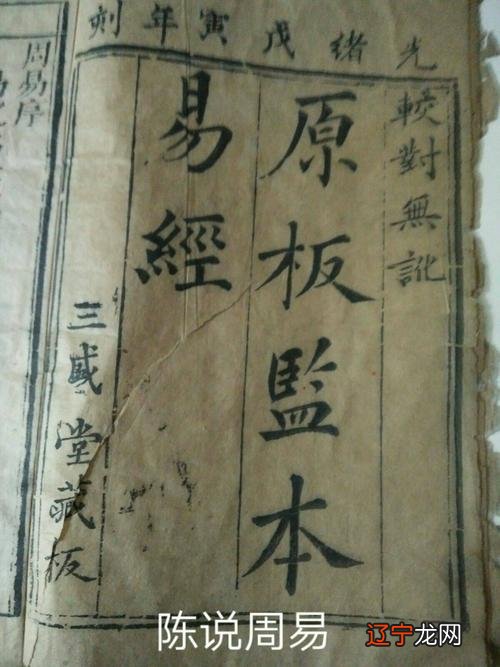 光緒戊寅年刻
較對無訛
原板監本
易經
三盛堂藏板
周易序
陈说周易
辽宁龙网